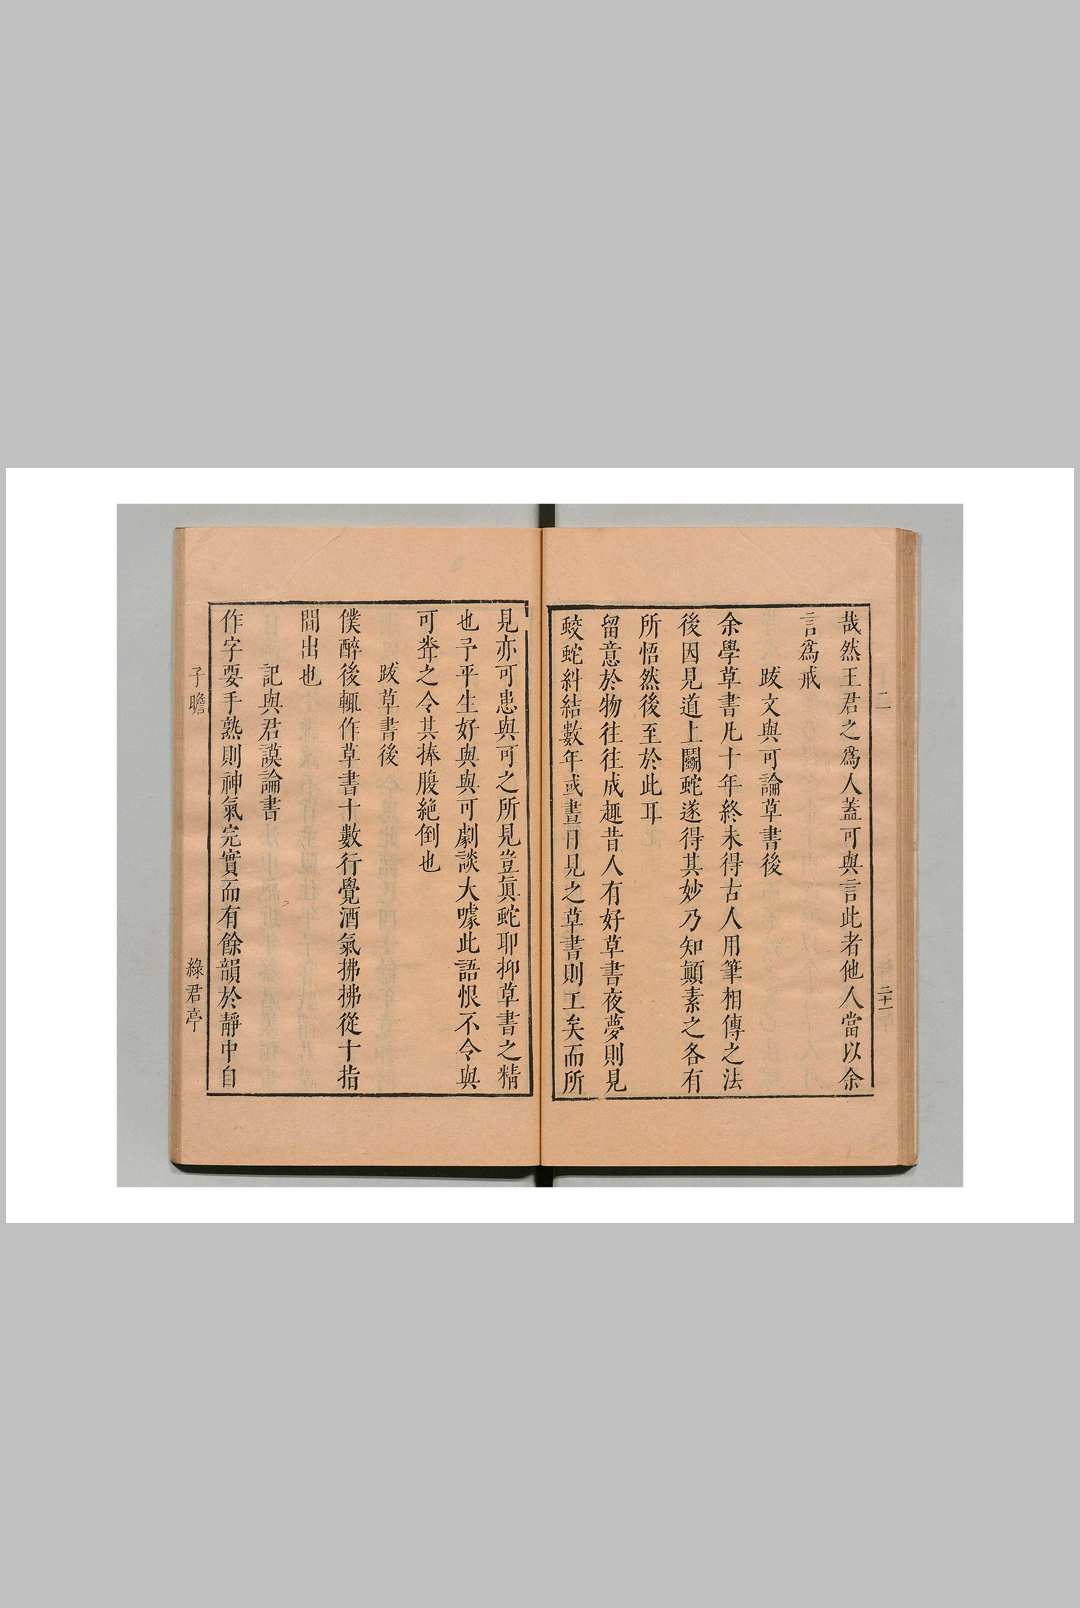 二
二十一
哉然王君之爲人蓋可與言此者他人當以余
言爲戒
跋文與可論草書後
余學草書凡十年終未得古人用筆相傳之法
後因見道上鬭蛇遂得其妙乃知顛素之各有
所悟然後至於此耳
留意於物往往成趣昔人有好草書夜夢則見
蛟蛇糾結數年或晝日見之草書則工矣而所
見亦可患與可之所見豈眞蛇耶抑草書之精
也予平生好與與可劇談大噱此語恨不令與
可聞之令其捧腹絶倒也
跋草書後
僕醉後輒作草書十數行覺酒氣拂拂從十指
間出也
記與君謨論書
作字要手熟則神氣完實而有餘韻於靜中自
子瞻
綠君亭